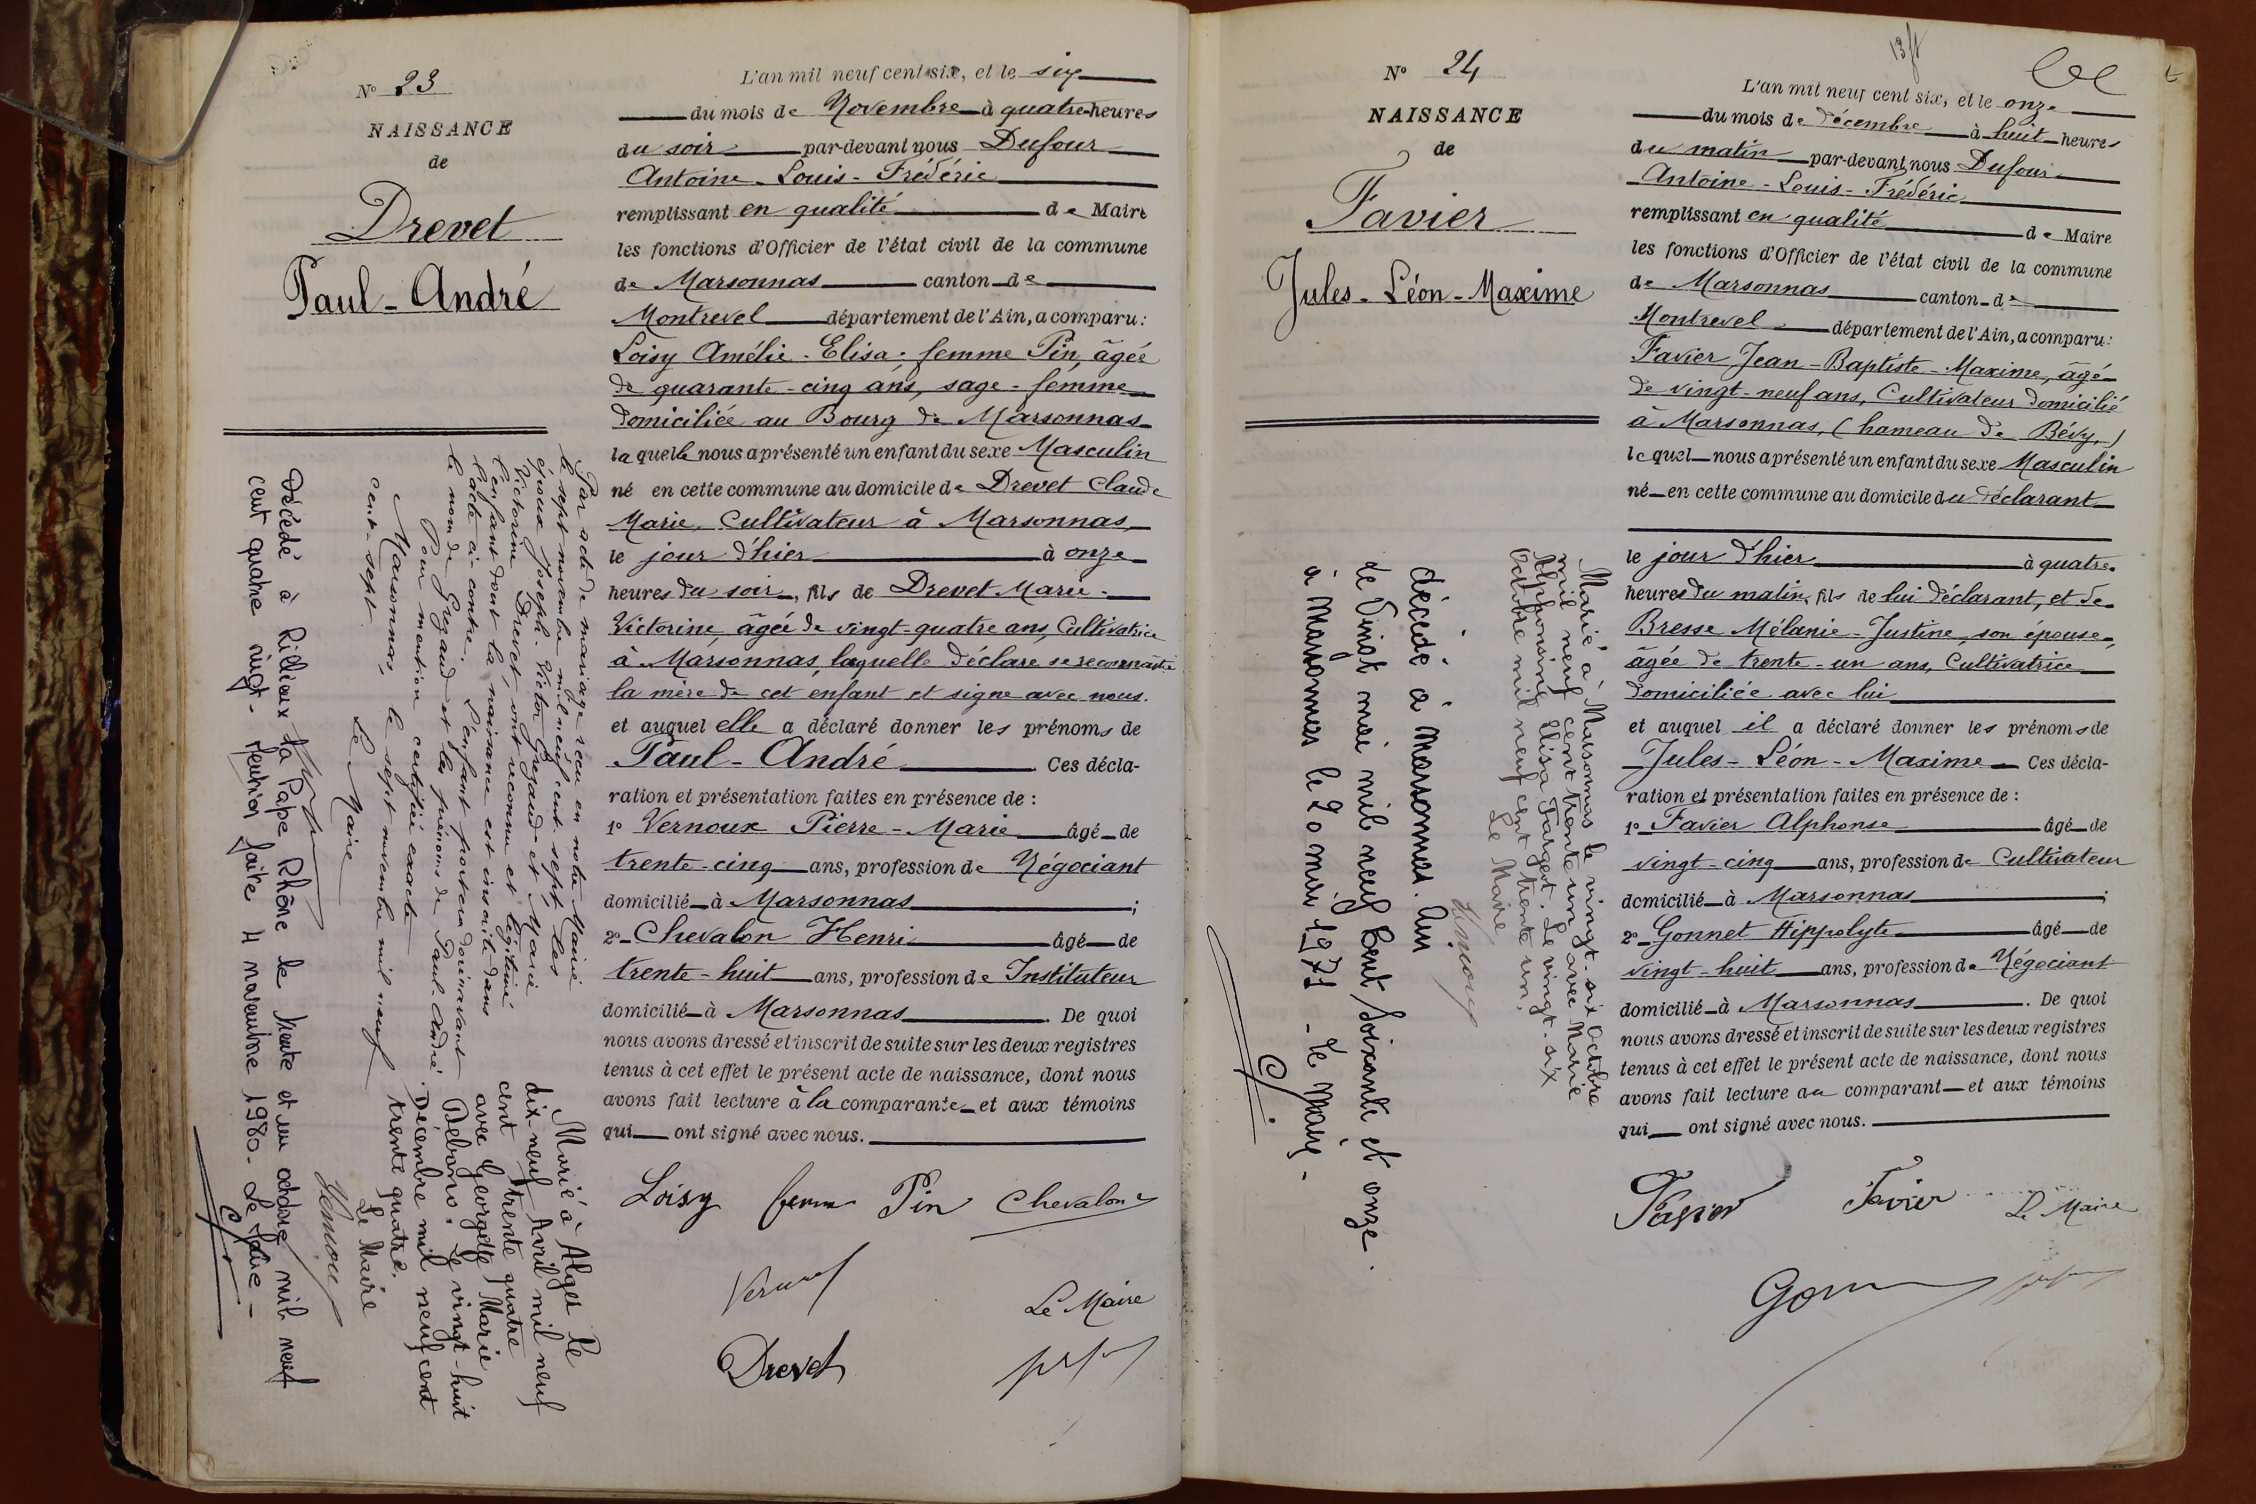 N° 23
NAISSANCE
de
Drevet
Paul-André
L'an mil neuf cent six, et le six
du mois de Novembre à quatre heures
du soir par-devant nous Dufour
Antoine-Louis-Frédéric
remplissant en qualité de Maire
les fonctions d'Officier de l'état civil de la commune
de Marsonnas canton de
Montrevel département de l'Ain, a comparu:
Loisy Amélie-Elisa, femme Pin, âgée
de quarante-cinq ans, sage-femme
domiciliée au Bourg de Marsonnas
laquelle nous a présenté un enfant du sexe Masculin
né en cette commune au domicile de Drevet Claude
Marie, Cultivateur à Marsonnas
le jour d'hier à onze
heures du soir, fils de Drevet Marie-
Victorine, âgée de vingt-quatre ans, Cultivatrice
à Marsonnas, laquelle déclare se reconnaître
la mère de cet enfant et signe avec nous.
et auquel elle a déclaré donner les prénoms de
Paul-André Ces décla-
ration et présentation faites en présence de :
1° Vernoux Pierre-Marie âgé de
trente-cinq ans, profession de Négociant
domicilié à Marsonnas ;
2° Chevalon Henri âgé de
trente-huit ans, profession de Instituteur
domicilié à Marsonnas. De quoi
nous avons dressé et inscrit de suite sur les deux registres
tenus à cet effet le présent acte de naissance, dont nous
avons fait lecture à la comparante et aux témoins
qui ont signé avec nous.
Loisy femme Pin Chevalon
Le Maire
Drevet
Par acte de mariage reçu en notre Mairie
le sept novembre mil neuf cent sept, les
époux Joseph-Victor Gregaud et Marie
Victorine Drevet, ont reconnu et légitimé
l'enfant dont la naissance est inscrite dans
l'acte ci-contre. L'enfant portera dorénavant
le nom de Gregaud et les prénoms de Paul-André.
Pour mention certifiée exacte
Marsonnas, le sept novembre mil neuf
cent-sept.
Le Maire
Marié à Alger le
dix-neuf Avril mil neuf
cent trente quatre
avec Georgette Marie
Debono. Le vingt-huit
Décembre mil neuf cent
trente quatre.
Le Maire
Décédé à Rillieux la Pape Rhône le trente et un octobre mil neuf
cent quatre vingt. Mention faite 4 novembre 1980. Le Maire
N° 24
NAISSANCE
de
Favier
Jules-Léon-Maxime
L'an mil neuf cent six, et le onze
du mois de décembre à huit heures
du matin par-devant nous Dufour
Antoine-Louis-Frédéric
remplissant en qualité de Maire
les fonctions d'Officier de l'état civil de la commune
de Marsonnas canton de
Montrevel département de l'Ain, a comparu:
Favier Jean-Baptiste-Maxime, âgé
de vingt-neuf ans, Cultivateur domicilié
à Marsonnas, (hameau de Bévy,)
lequel nous a présenté un enfant du sexe Masculin
né en cette commune au domicile du déclarant
le jour d'hier à quatre
heures du matin, fils de lui déclarant, et de
Bresse Mélanie-Justine, son épouse,
âgée de trente-un ans, Cultivatrice
domiciliée avec lui
et auquel il a déclaré donner les prénoms de
Jules-Léon-Maxime Ces décla-
ration et présentation faites en présence de :
1° Favier Alphonse âgé de
vingt-cinq ans, profession de Cultivateur
domicilié à Marsonnas ;
2° Gonnet Hippolyte âgé de
vingt-huit ans, profession de Négociant
domicilié à Marsonnas. De quoi
nous avons dressé et inscrit de suite sur les deux registres
tenus à cet effet le présent acte de naissance, dont nous
avons fait lecture au comparant et aux témoins
qui ont signé avec nous.
Favier Favier Le Maire
Marié à Marsonnas le vingt-six Octobre
mil neuf cent trente un avec Marie
Alphonsine Elisa Farget. Le vingt-six
Octobre mil neuf cent trente un.
Le Maire
décédé à Marsonnas. Ain
le Vingt mai mil neuf cent soixante et onze.
à Marsonnas le 20 mai 1971 - Le Maire.